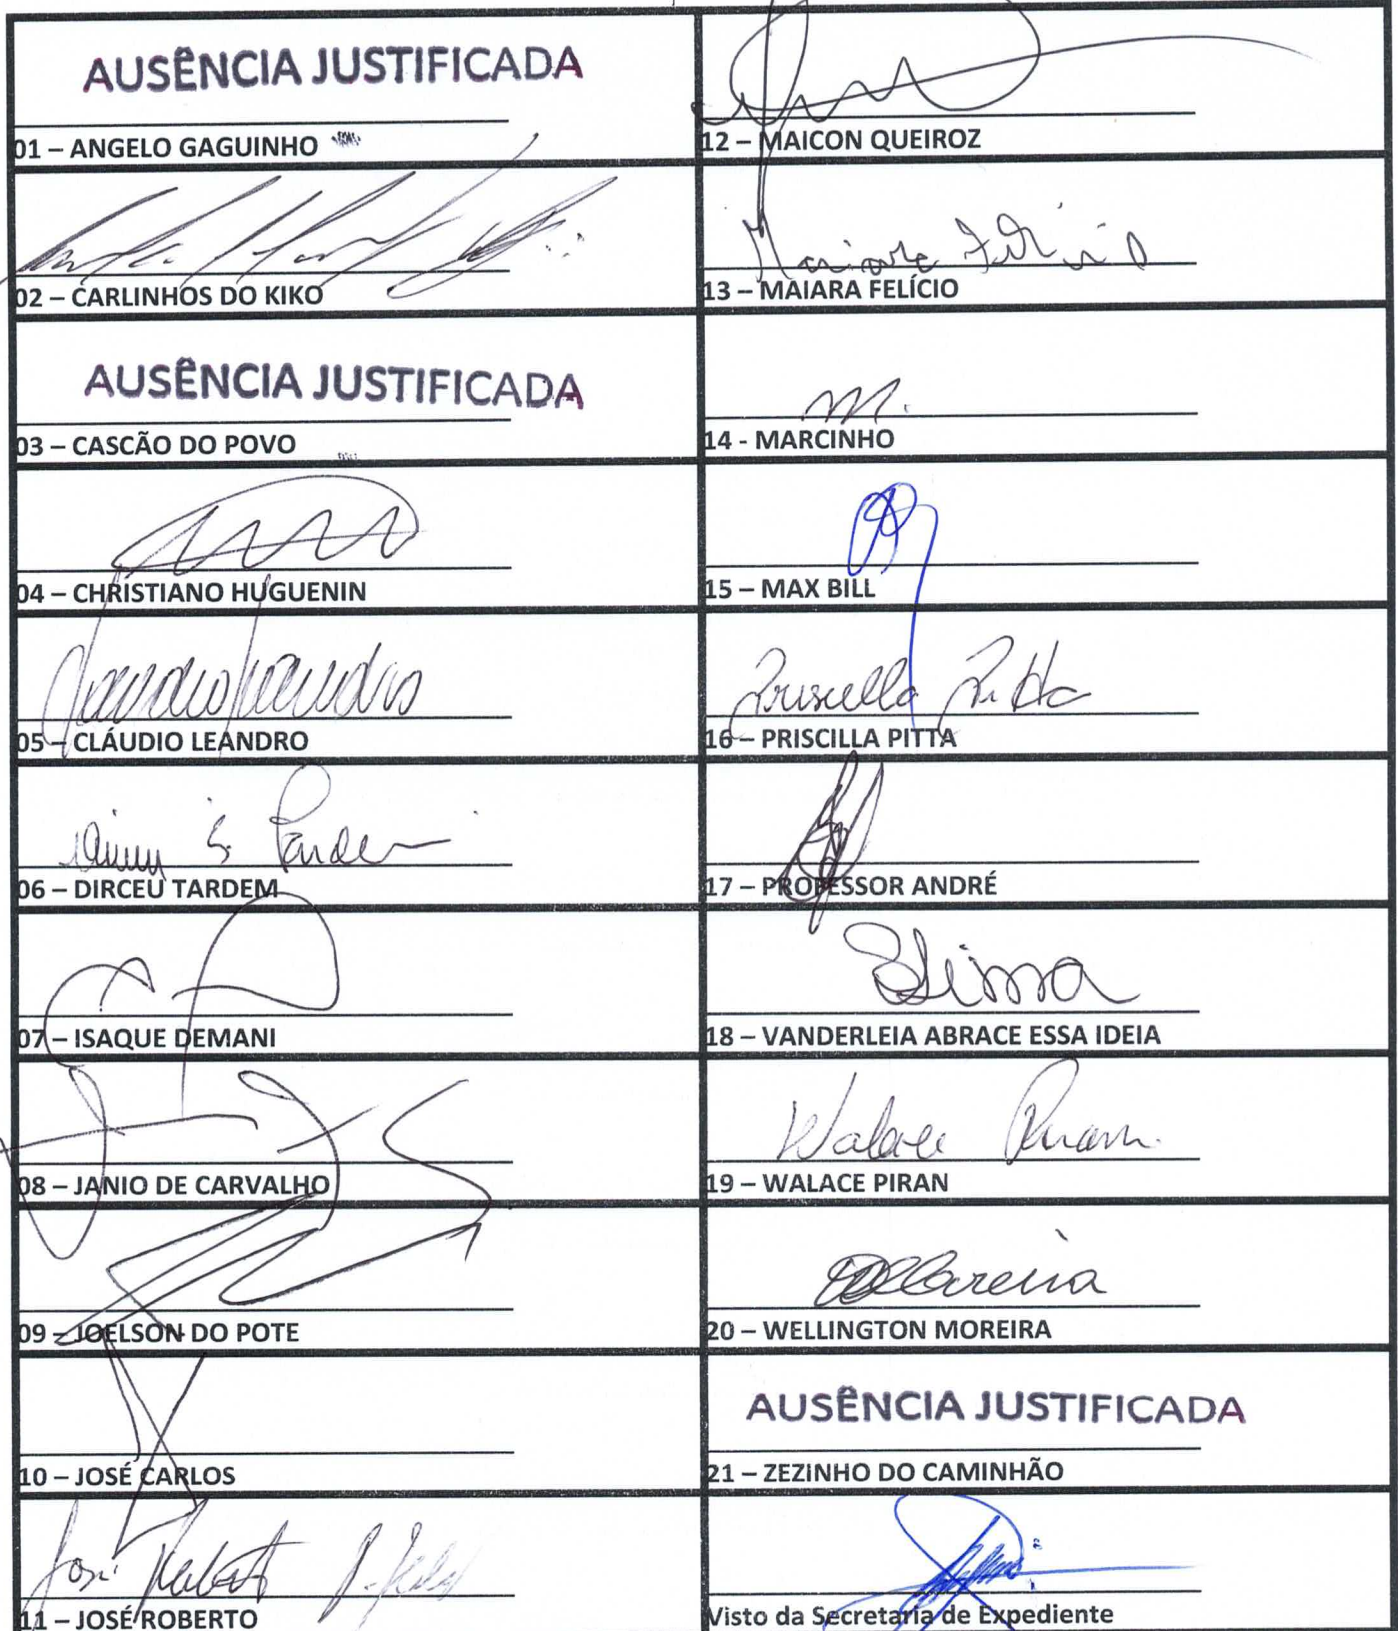 AUSÊNCIA JUSTIFICADA
01 – ANGELO GAGUINHO
02 – CARLINHOS DO KIKO
AUSÊNCIA JUSTIFICADA
03 – CASCÃO DO POVO
04 – CHRISTIANO HUGUENIN
05 – CLÁUDIO LEANDRO
06 – DIRCEU TARDEM
07 – ISAQUE DEMANI
08 – JANIO DE CARVALHO
09 – JOELSON DO POTE
10 – JOSÉ CARLOS
José Roberto
11 – JOSÉ ROBERTO
12 – MAICON QUEIROZ
13 – MAIARA FELÍCIO
M.
14 - MARCINHO
15 – MAX BILL
Priscilla Pitta
16 – PRISCILLA PITTA
17 – PROFESSOR ANDRÉ
18 – VANDERLEIA ABRACE ESSA IDEIA
Walace Piran
19 – WALACE PIRAN
20 – WELLINGTON MOREIRA
AUSÊNCIA JUSTIFICADA
21 – ZEZINHO DO CAMINHÃO
Visto da Secretaria de Expediente